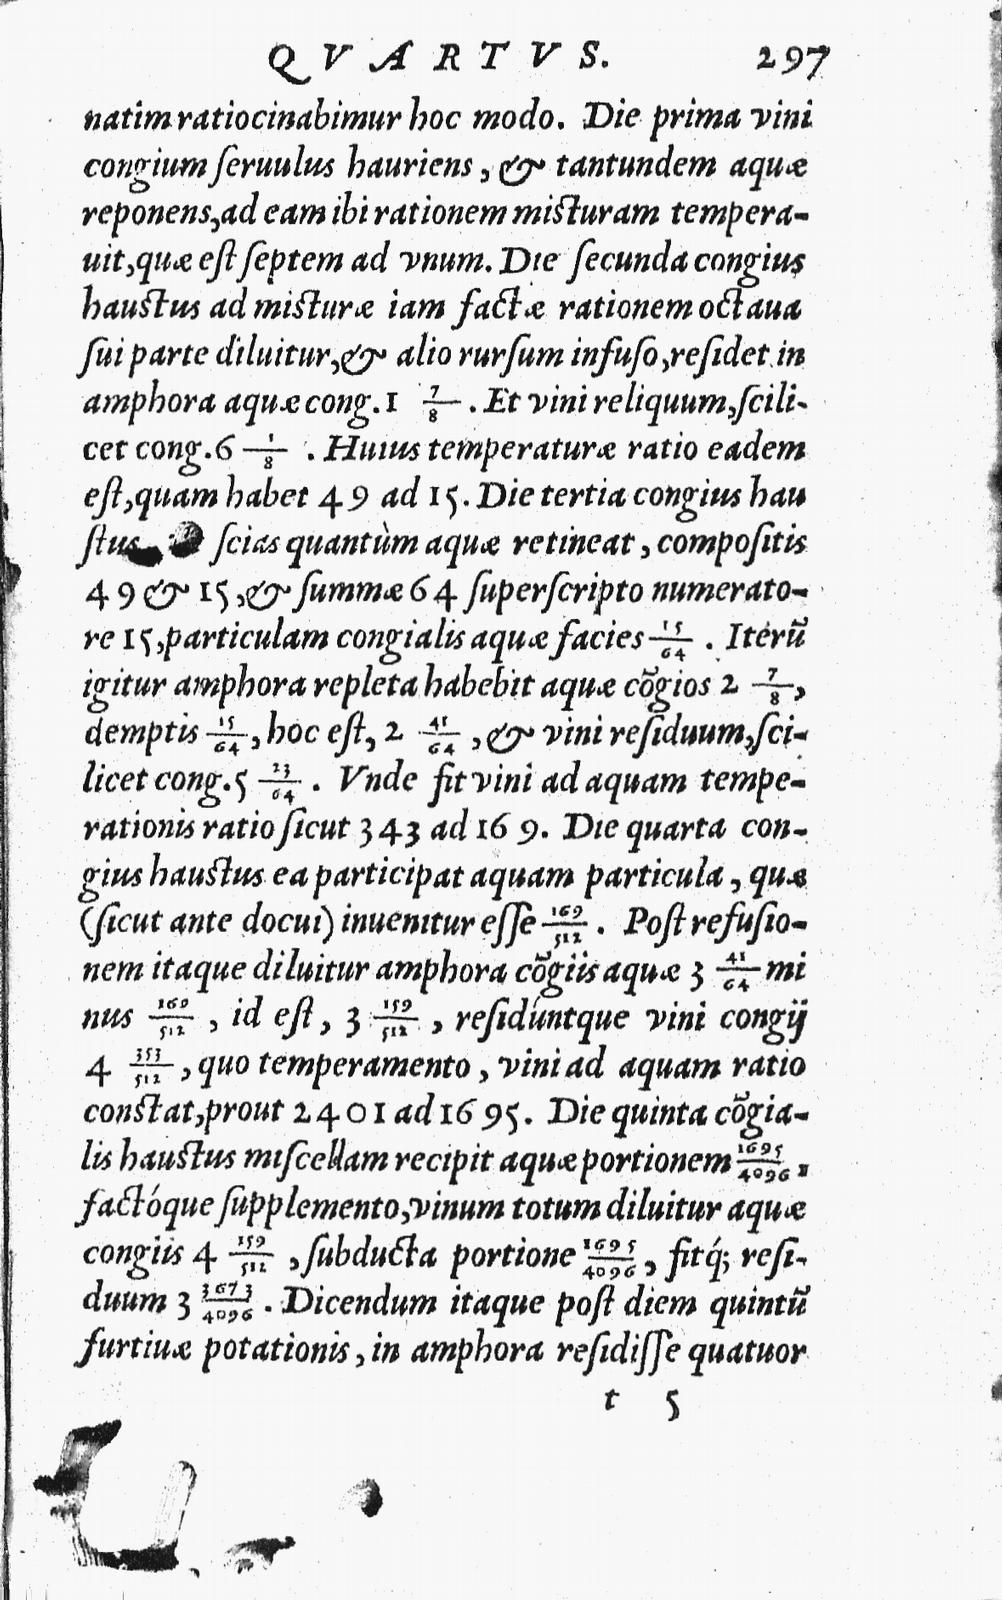 QVARTVS. 297
natim ratiocinabimur hoc modo. Die prima vini
congium ſeruulus hauriens, & tantundem aquæ
reponens, ad eam ibi rationem miſturam tempera-
uit, quæ eſt ſeptem ad vnum. Die ſecunda congius
hauſtus ad miſturæ iam factæ rationem octaua
ſui parte diluitur, & alio rurſum infuſo, reſidet in
amphora aquæ cong. 1 7/8. Et vini reliquum, ſcili-
cet cong. 6 1/8. Huius temperaturæ ratio eadem
eſt, quam habet 49 ad 15. Die tertia congius hau
ſtus ſcias quantùm aquæ retineat, compoſitis
49 & 15, & ſummæ 64 ſuperſcripto numerato-
re 15, particulam congialis aquæ facies 15/64. Iterũ
igitur amphora repleta habebit aquæ cõgios 2 7/8,
demptis 15/64, hoc eſt, 2 41/64, & vini reſiduum, ſci-
licet cong. 5 23/64. Vnde fit vini ad aquam tempe-
rationis ratio ſicut 343 ad 169. Die quarta con-
gius hauſtus ea participat aquam particula, quæ
(ſicut ante docui) inuenitur eſſe 169/512. Poſt refuſio-
nem itaque diluitur amphora cõgiis aquæ 3 41/64 mi
nus 169/512, id eſt, 3 159/512, reſidúntque vini congij
4 353/512, quo temperamento, vini ad aquam ratio
conſtat, prout 2401 ad 1695. Die quinta cõgia-
lis hauſtus miſcellam recipit aquæ portionem 1695/4096,
factóque ſupplemento, vinum totum diluitur aquæ
congiis 4 159/512, ſubducta portione 1695/4096, fitq́; reſi-
duum 3 3673/4096. Dicendum itaque poſt diem quintũ
furtiuæ potationis, in amphora reſidiſſe quatuor
t 5